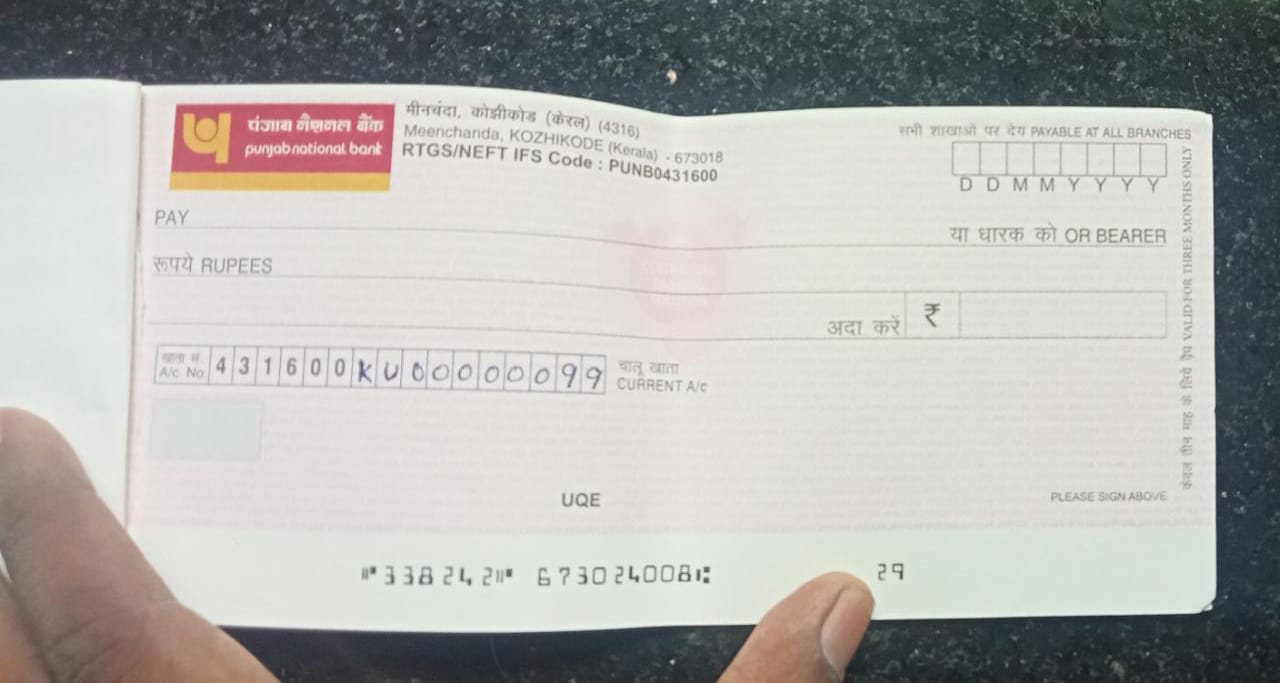 पंजाब नैशनल बैंक
punjab national bank
मीनचंदा, कोझीकोड (केरल) (4316)
Meenchanda, KOZHIKODE (Kerala) - 673018
RTGS/NEFT IFS Code : PUNB0431600
सभी शाखाओं पर देय PAYABLE AT ALL BRANCHES
D D M M Y Y Y Y
PAY
या धारक को OR BEARER
रूपये RUPEES
अदा करें ₹
खाता सं.
A/c. No. 431600KU000000099
चालू खाता
CURRENT A/c
UQE
PLEASE SIGN ABOVE
केवल तीन माह के लिये वैध VALID FOR THREE MONTHS ONLY
⑈338242⑈ 673024008⑆ 29